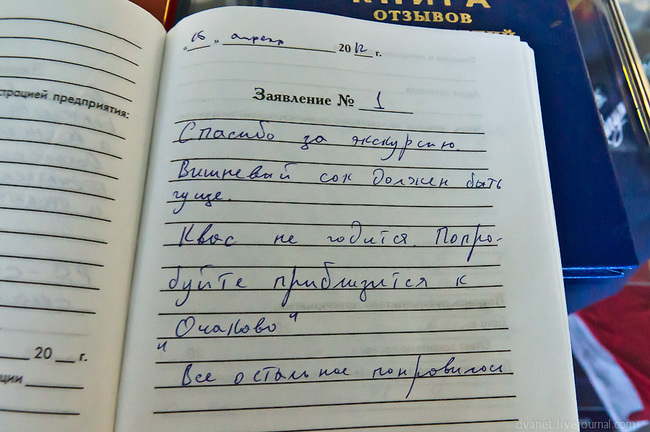 КНИГА
ОТЗЫВОВ
страцией предприятия:
20 г.
ции
"16" апреля 2012 г.
Заявление № 1
Спасибо за экскурсию.
Вишневый сок должен быть
гуще.
Квас не годится. Попро-
буйте приблизится к
"Очаково"
Все остальное понравилось
dvanet.livejournal.com